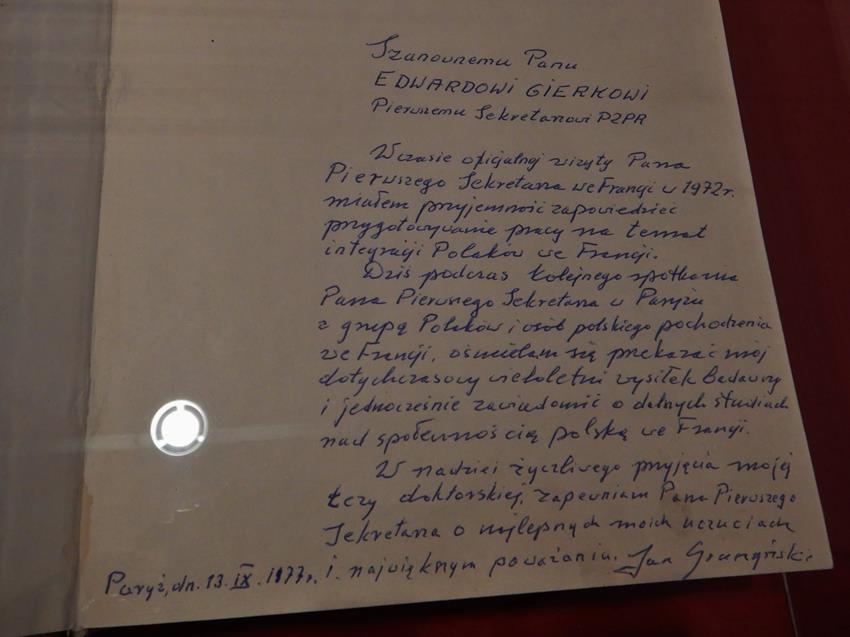 Szanownemu Panu
EDWARDOWI GIERKOWI
Pierwszemu Sekretarzowi PZPR
W czasie oficjalnej wizyty Pana
Pierwszego Sekretarza we Francji w 1972 r.
miałem przyjemność zapowiedzieć
przygotowywanie pracy na temat
integracji Polaków we Francji.
Dziś podczas kolejnego spotkania
Pana Pierwszego Sekretarza w Paryżu
z grupą Polaków i osób polskiego pochodzenia
we Francji, ośmielam się przekazać mój
dotychczasowy wieloletni wysiłek badawczy
i jednocześnie zawiadomić o dalszych studiach
nad społecznością polską we Francji.
W nadziei życzliwego przyjęcia mojej
tezy doktorskiej, zapewniam Pana Pierwszego
Sekretarza o najlepszych moich uczuciach
i największym poważaniu. Jan
Paryż, dn. 13. IX. 1977 r.